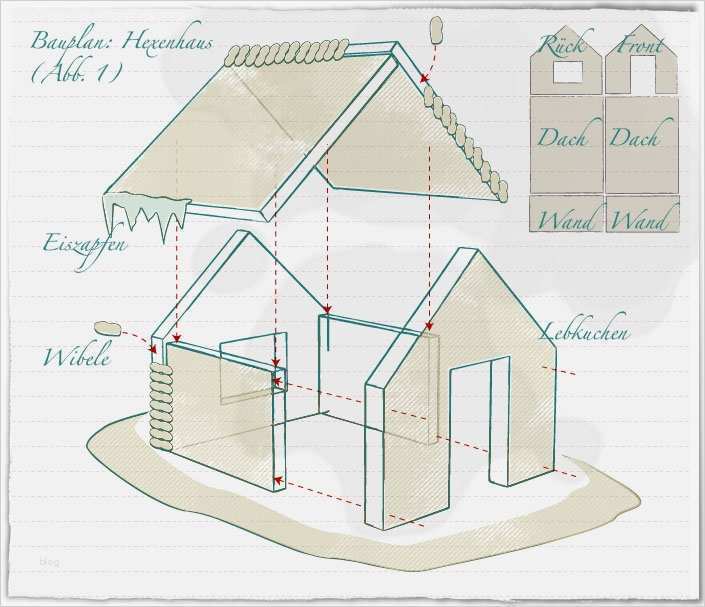 Bauplan: Hexenhaus
(Abb. 1)
Rück Front
Dach Dach
Wand Wand
Eiszapfen
Lebkuchen
Wibele
blog